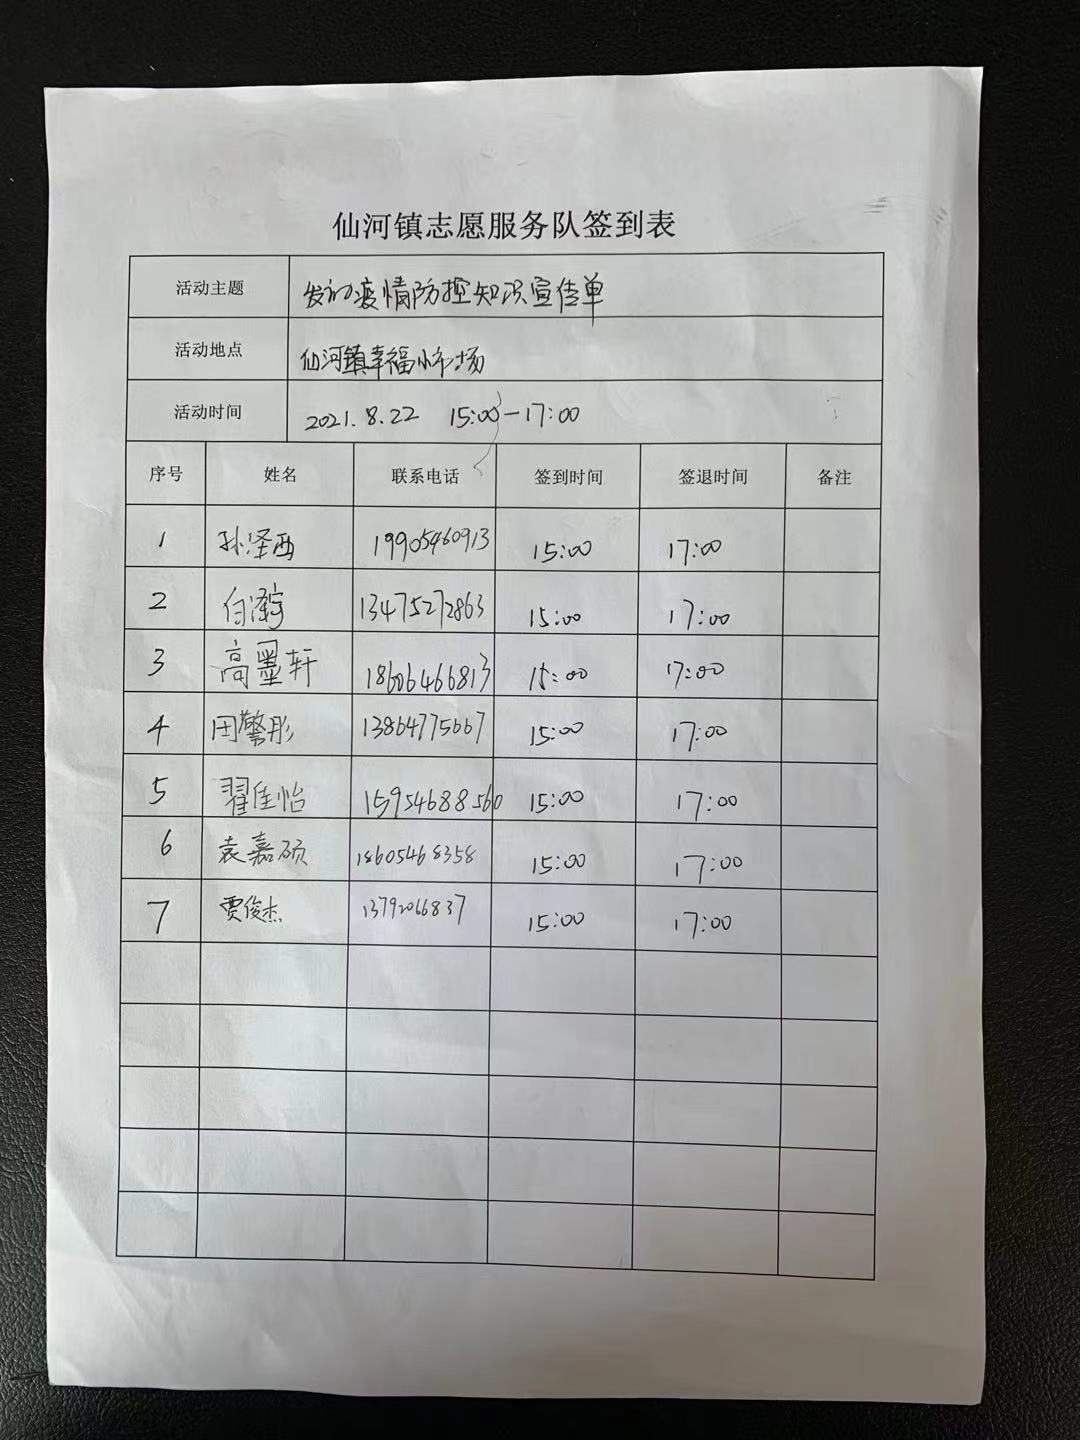 仙河镇志愿服务队签到表
活动主题 发的疫情防控知识宣传单
活动地点 仙河镇幸福小市场
活动时间 2021.8.22 15:00-17:00
序号 姓名 联系电话 签到时间 签退时间 备注
1 孙泽西 19905460913 15:00 17:00
2 白泽宇 13475272863 15:00 17:00
3 高墨轩 18606466813 15:00 17:00
4 田警彤 13864775667 15:00 17:00
5 翟佳怡 15954688560 15:00 17:00
6 袁嘉硕 18605468358 15:00 17:00
7 贾俊杰 13792066837 15:00 17:00